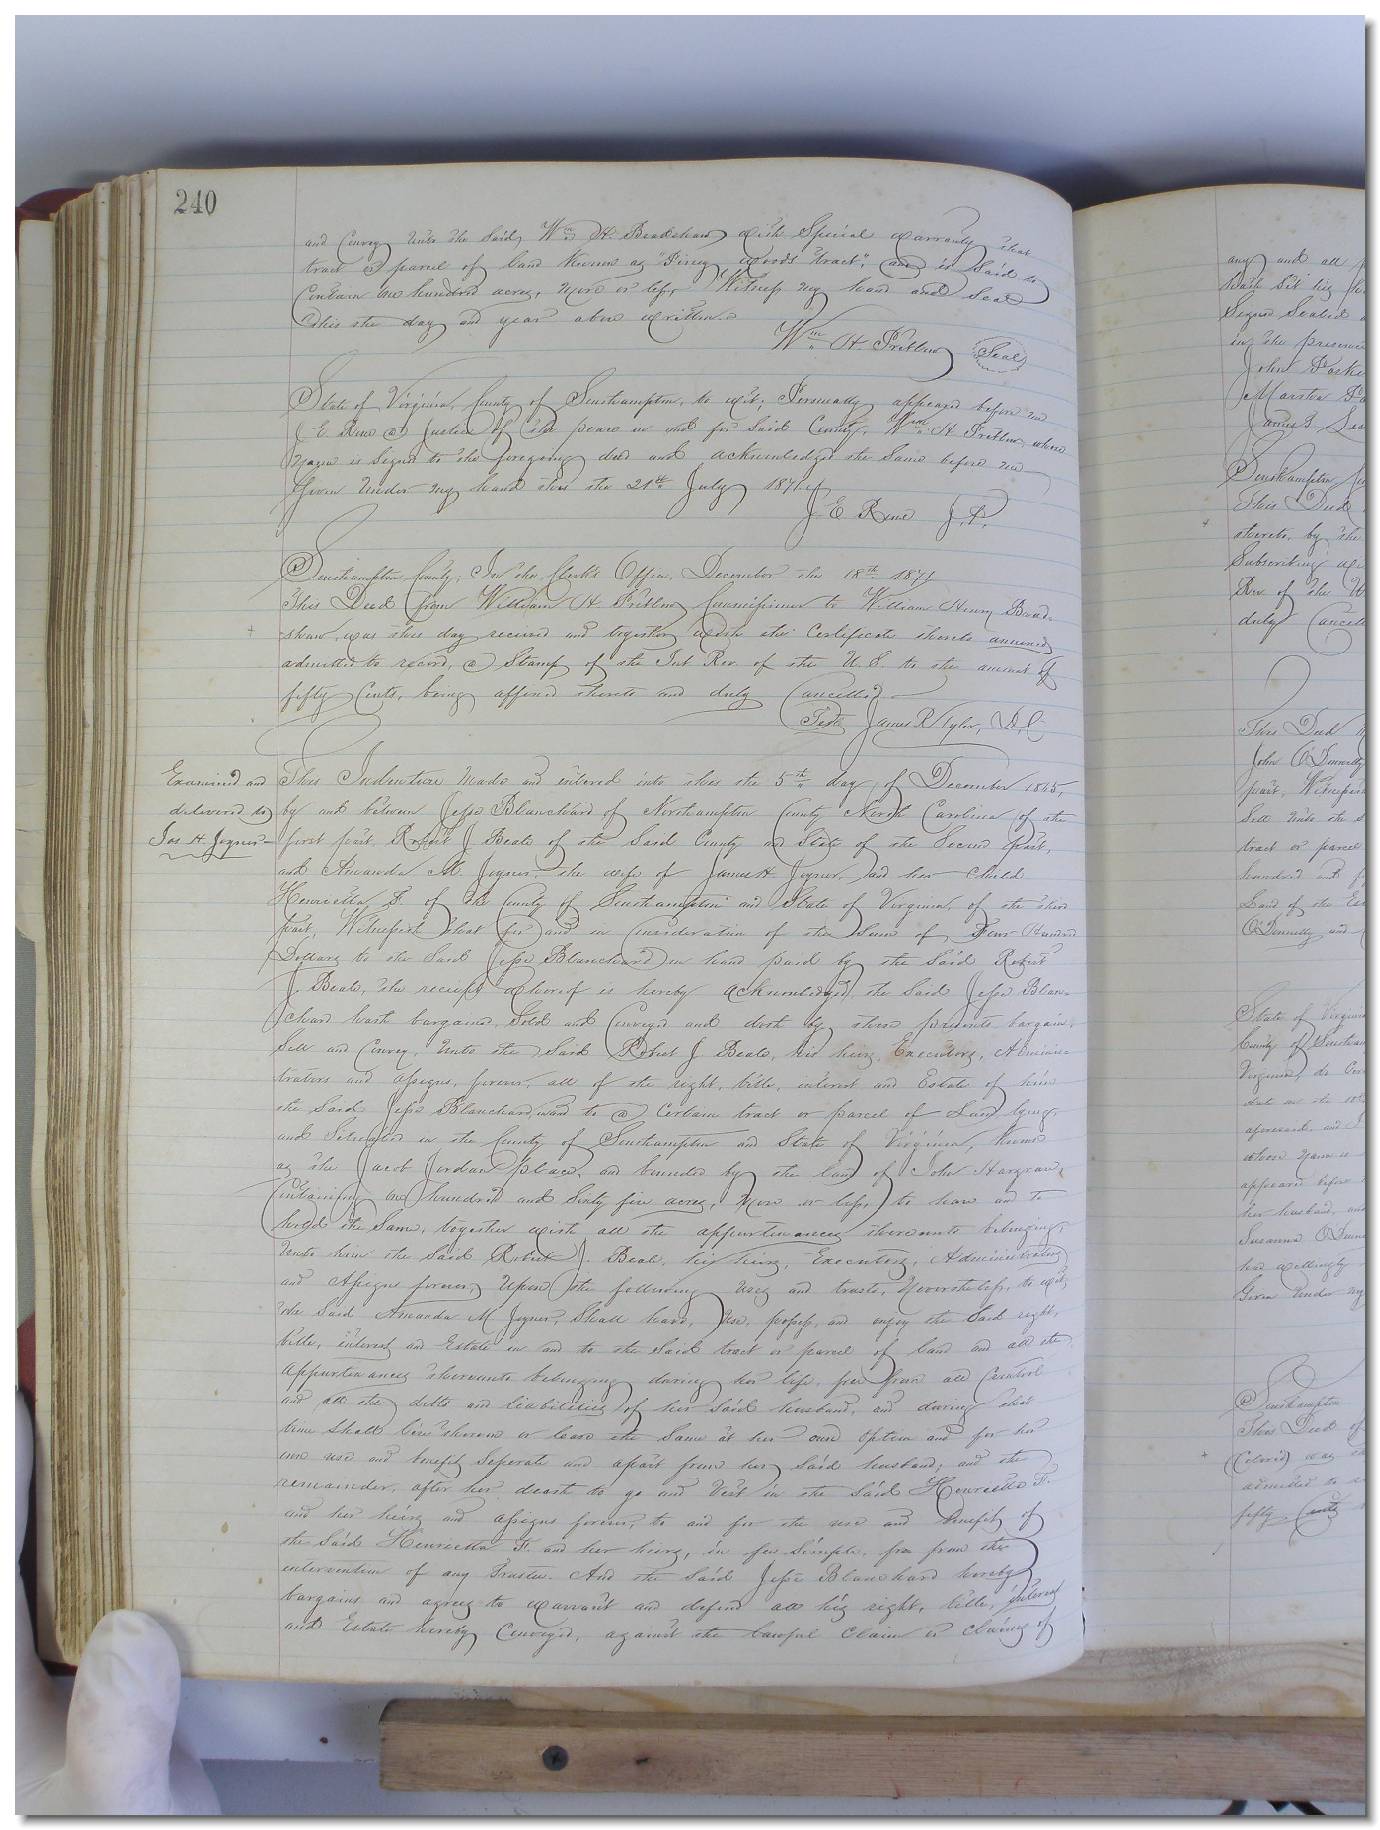 240
and Convey unto the said Wm H. Bradshaw with Special warranty that
tract or parcel of land known as "Piney woods tract", and is Said to
Contain one hundred acres, more or less, Witness my hand and Seal
this the day and year above written.
Wm H. Pretlow (Seal)
State of Virginia, County of Southampton, to wit; Personally appeared before me
J. E. a Justice of the peace in and for Said County, Wm H Pretlow, whose
name is Signed to the foregoing deed and acknowledged the Same before me
Given under my hand this the 21st July 1871
J. E J.P.
Southampton County, In the Clerk's Office, December the 18th 1871
This Deed from William H Pretlow Commissioner to William Henry Brad-
shaw, was this day received and together with the Certificate thereto annexed
admitted to record, a Stamp of the Int Rev. of the U. S. to the amount of
fifty Cents, being affixed thereto and duly Cancelled
Teste James R Tyler, D.C.
Examined and
delivered to
Jas H. Joyner
This Indenture Made and entered into this the 5th day of December 1845,
by and between Jesse Blanchard of Northampton County North Carolina of the
first part, Robert J Beale of the Said County and State of the Second part,
and Amanda M. Joyner, the wife of James H. Joyner, and her child
Henrietta F. of the County of Southampton and State of Virginia, of the third
part, Witnesseth that for and in Consideration of the Sum of Four Hundred
Dollars to the Said Jesse Blanchard in hand paid by the Said Robert
J. Beale, the receipt whereof is hereby acknowledged, the Said Jesse Blan-
chard hath bargained, Sold and Conveyed and doth by these presents bargain,
Sell and Convey, Unto the Said Robert J Beale, his heirs, Executors, Adminis-
trators and assigns, forever, all of the right, title, interest and Estate of him
the Said Jesse Blanchard, in and to a Certain tract or parcel of Land lying
and Situated in the County of Southampton and State of Virginia, known
as the Jacob Jordan place, and bounded by the land of John Hargrave,
Containing one hundred and Sixty five acres, more or less, to have and to
hold the Same, together with all the appurtenances thereunto belonging,
Unto him the Said Robert J. Beale, his heirs, Executors, Administrators
and Assigns forever, Upon the following uses and trusts, Nevertheless, to wit;
the Said Amanda M Joyner, Shall have, Use, possess, and enjoy the Said right,
title, interest and Estate in and to the Said tract or parcel of land and all the
appurtenances thereunto belonging during her life, free from all Control
and all the debts and liabilities of her Said husband, and during that
time Shall live thereon or lease the Same at her own Option and for her
own use and benefit Seperate and apart from her Said husband; and the
remainder, after her death to go and Vest in the Said Henrietta F.
and her heirs and assigns forever, to and for the use and benefit of
the Said Henrietta F. and her heirs, in fee Simple, free from the
intervention of any Trustee. And the Said Jesse Blanchard hereby
bargains and agrees to warrant and defend all his right, title, interest
and Estate hereby Conveyed, against the lawful Claim or claims of
any and all
hath Set his
Signed Sealed
in the presence
John
Marston
James J.
Southampton
This Deed
thereto, by the
Subscribing
Rev. of the U
duly Cancell
This Deed
John O'Donnelly
part, Witnesseth
Sell unto the
tract or parcel
hundred and
Land of the
O'Donnelly and
State of Virginia
County of Southam
Virginia, do Cer
date on the 18
aforesaid and
whose name
appeared before
her husband, and
Susanna O'Donne
had willingly
Given under my
Southampton
This Deed of
(Colored) was
admitted to
fifty Cents